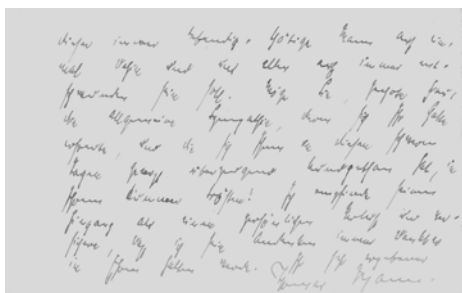 dieser immer lebendige, thätige Mann auf ein-
mal dahin sind und alles auf immer ent-
schwunden sein soll. Möge Sie, hochverehrte Frau,
die allgemeine Sympathie, deren sich Ihr Gatte
erfreute, und die sich Ihnen in diesen schweren
Tagen gewiß überzeugend kundgethan hat, in
Ihrem Kummer trösten! Ich empfinde seinen
Hingang als einen persönlichen Verlust und ver-
sichere, daß ich sein Andenken immer dankbar
in Ehren halten werde. Ihr sehr ergebener